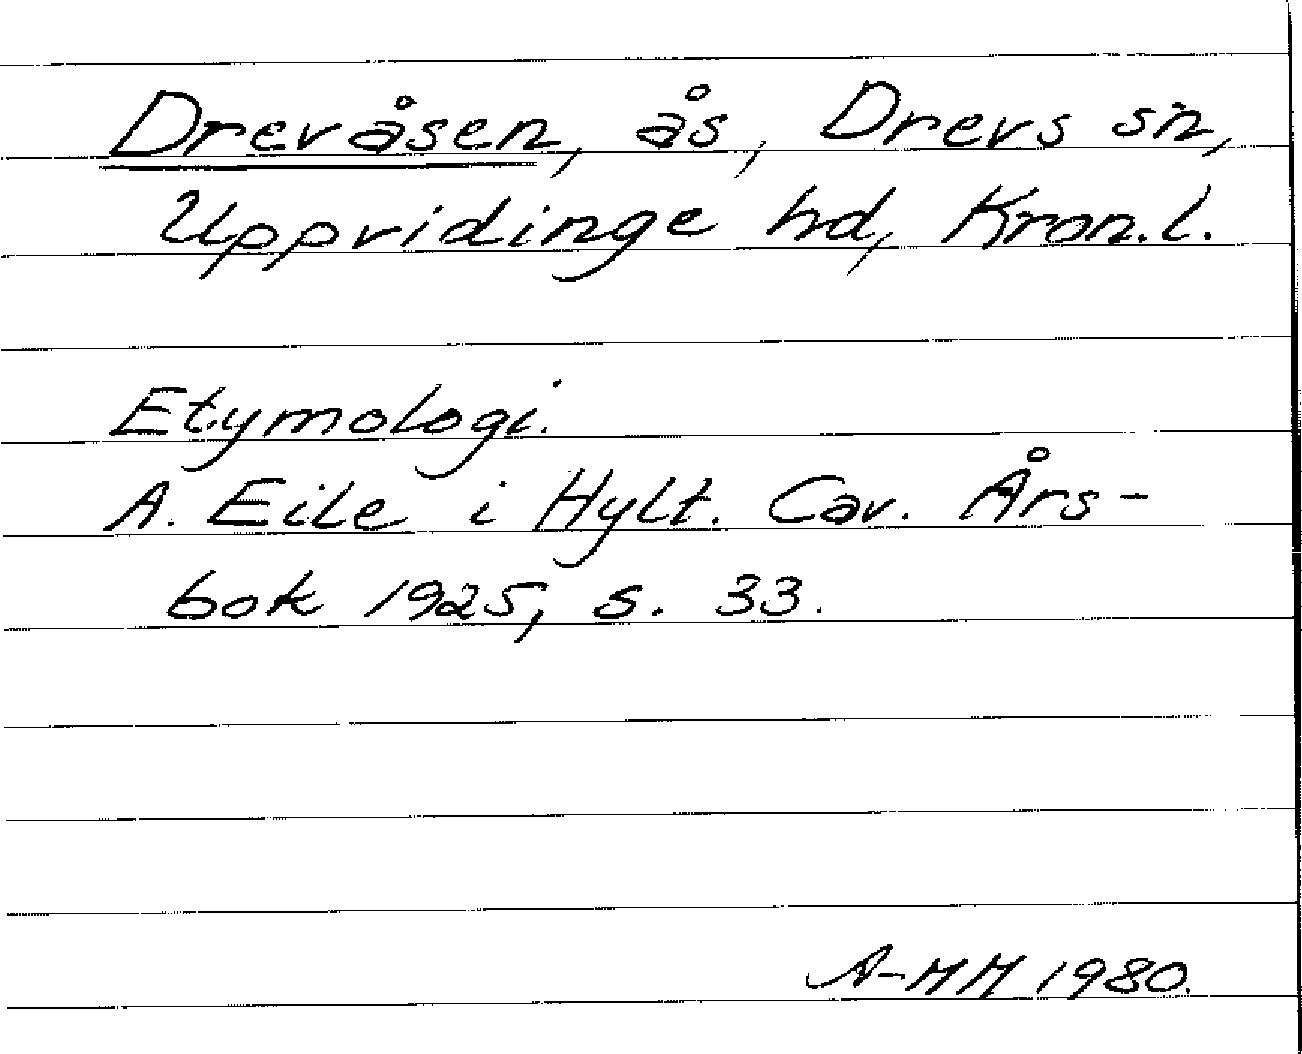 Drevåsen, ås, Drevs sn,
Uppvidinge hd, Kron.l.
Etymologi.
A. Eile i Hylt. Cav. Års-
bok 1925, s. 33.
A-MM 1980.